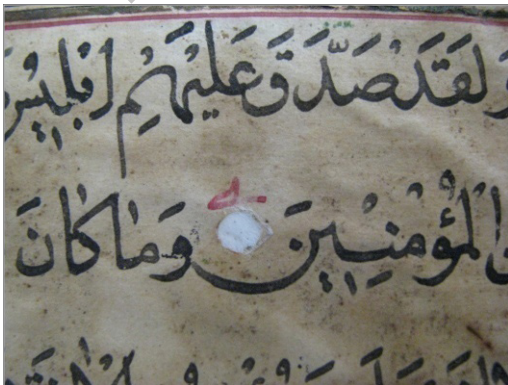 وَلَقَدْ صَدَّقَ عَلَيْهِمْ اِبْلِيسُ
الْمُؤْمِنِينَ وَمَا كَانَ